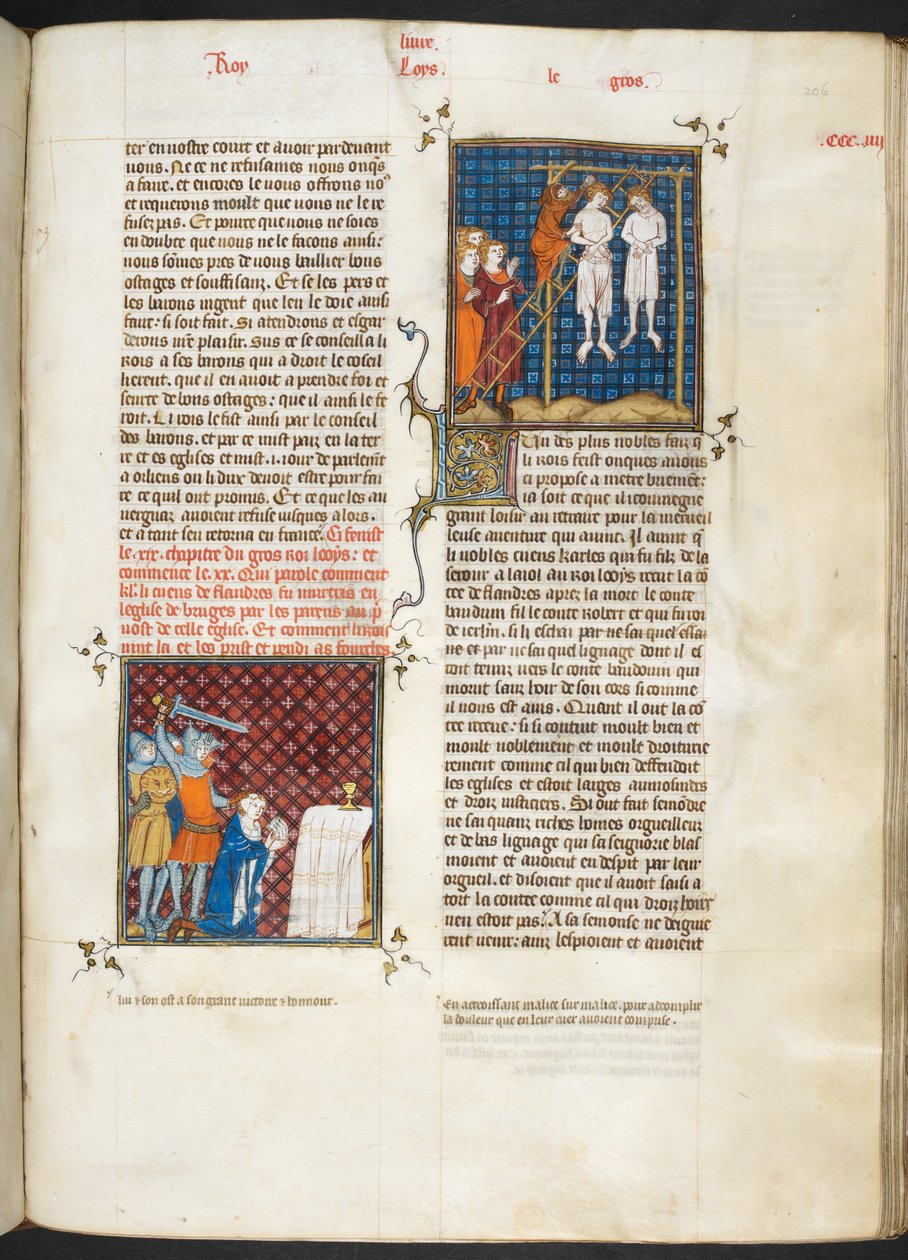 liure.
Roy Loys. le gros.
306
.CCC. iiij
ter en uostre court et auoir par deuant
uous. Ne ce ne refusames nous onq̄s
a faire. et encores le uous offrons no9
et requerons moult que uous ne le re
fusez pas. Et pource que uous ne soies
en doubte que nous ne le facons ainsi:
nous sōmes pres de uous baillier bons
ostages et souffisanz. Et se les pers et
les barons iugent que len le doie ainsi
faire: si soit fait. Si atendrons et esgar
derons ur̄e plaisir. Sus ce se conseilla li
rois a ses barons qui a droit le cōseil
lierent. que il en auoit a prendre foi et
seurte de bons ostages: que il ainsi le fe
roit. Li rois le fist ainsi par le conseil
des barons. et par ce mist paiz en la ter
re et es eglises et mist .i. iour de parlemēt
a orliens ou li dux deuoit estre pour fai
re ce quil ont promis. Et ce que les au
uergnaz auoient refuse iusques alors.
et a tant sen retorna en france. Ci fenist
le .xix. chapitre du gros roi looys: et
commence le .xx. Qui parole comment
kl̄. li cuens de flandres fu murtris en
leglise de bruges par les parens au p̄
uost de celle eglise. Et comment li rois
uint la et les prist et pendi as fourches.
lui ⁊ son ost a son grant uictoire ⁊ honnour.
Un des plus nobles faiz q̄
li rois feist onques auons
ci propose a metre briemēt:
ia soit ce que il couuiegne
grant loisir au retraire pour la merueil
leuse auenture qui auint. Il auint q̄
li nobles cuens karles qui fu filz de la
serour a laiol au roi looys recut la cō
te de flandres aprez la mort le conte
baudoin fil le conte robert et qui fu roi
de ierlm̄. si li eschai par ne sai quel essa-
ne et par ne sai quel lignage dont il es
toit tenuz uers le conte baudouin qui
morut sanz hoir de son cors si comme
il nous est auis. Quant il ont la cō
tee receue: si se contint moult bien et
moult noblement et moult droiturie
rement comme cil qui bien deffendoit
les eglises et estoit larges aumosniers
et droiz iusticiers. Si out fait semōdre
ne sai quanz riches homes orgueilleux
et de bas lignage qui sa seignorie blas
moient et auoient en despit par leur
orgueil. et disoient que il auoit saisi a
tort la contee comme cil qui droiz hoirs
nen estoit pas. A sa semonse ne deigne
rent uenir: ainz lespioient et auoient
En accroissant malice sur malice. pour acomplir
la douleur que en leur cuer auoient comprise.